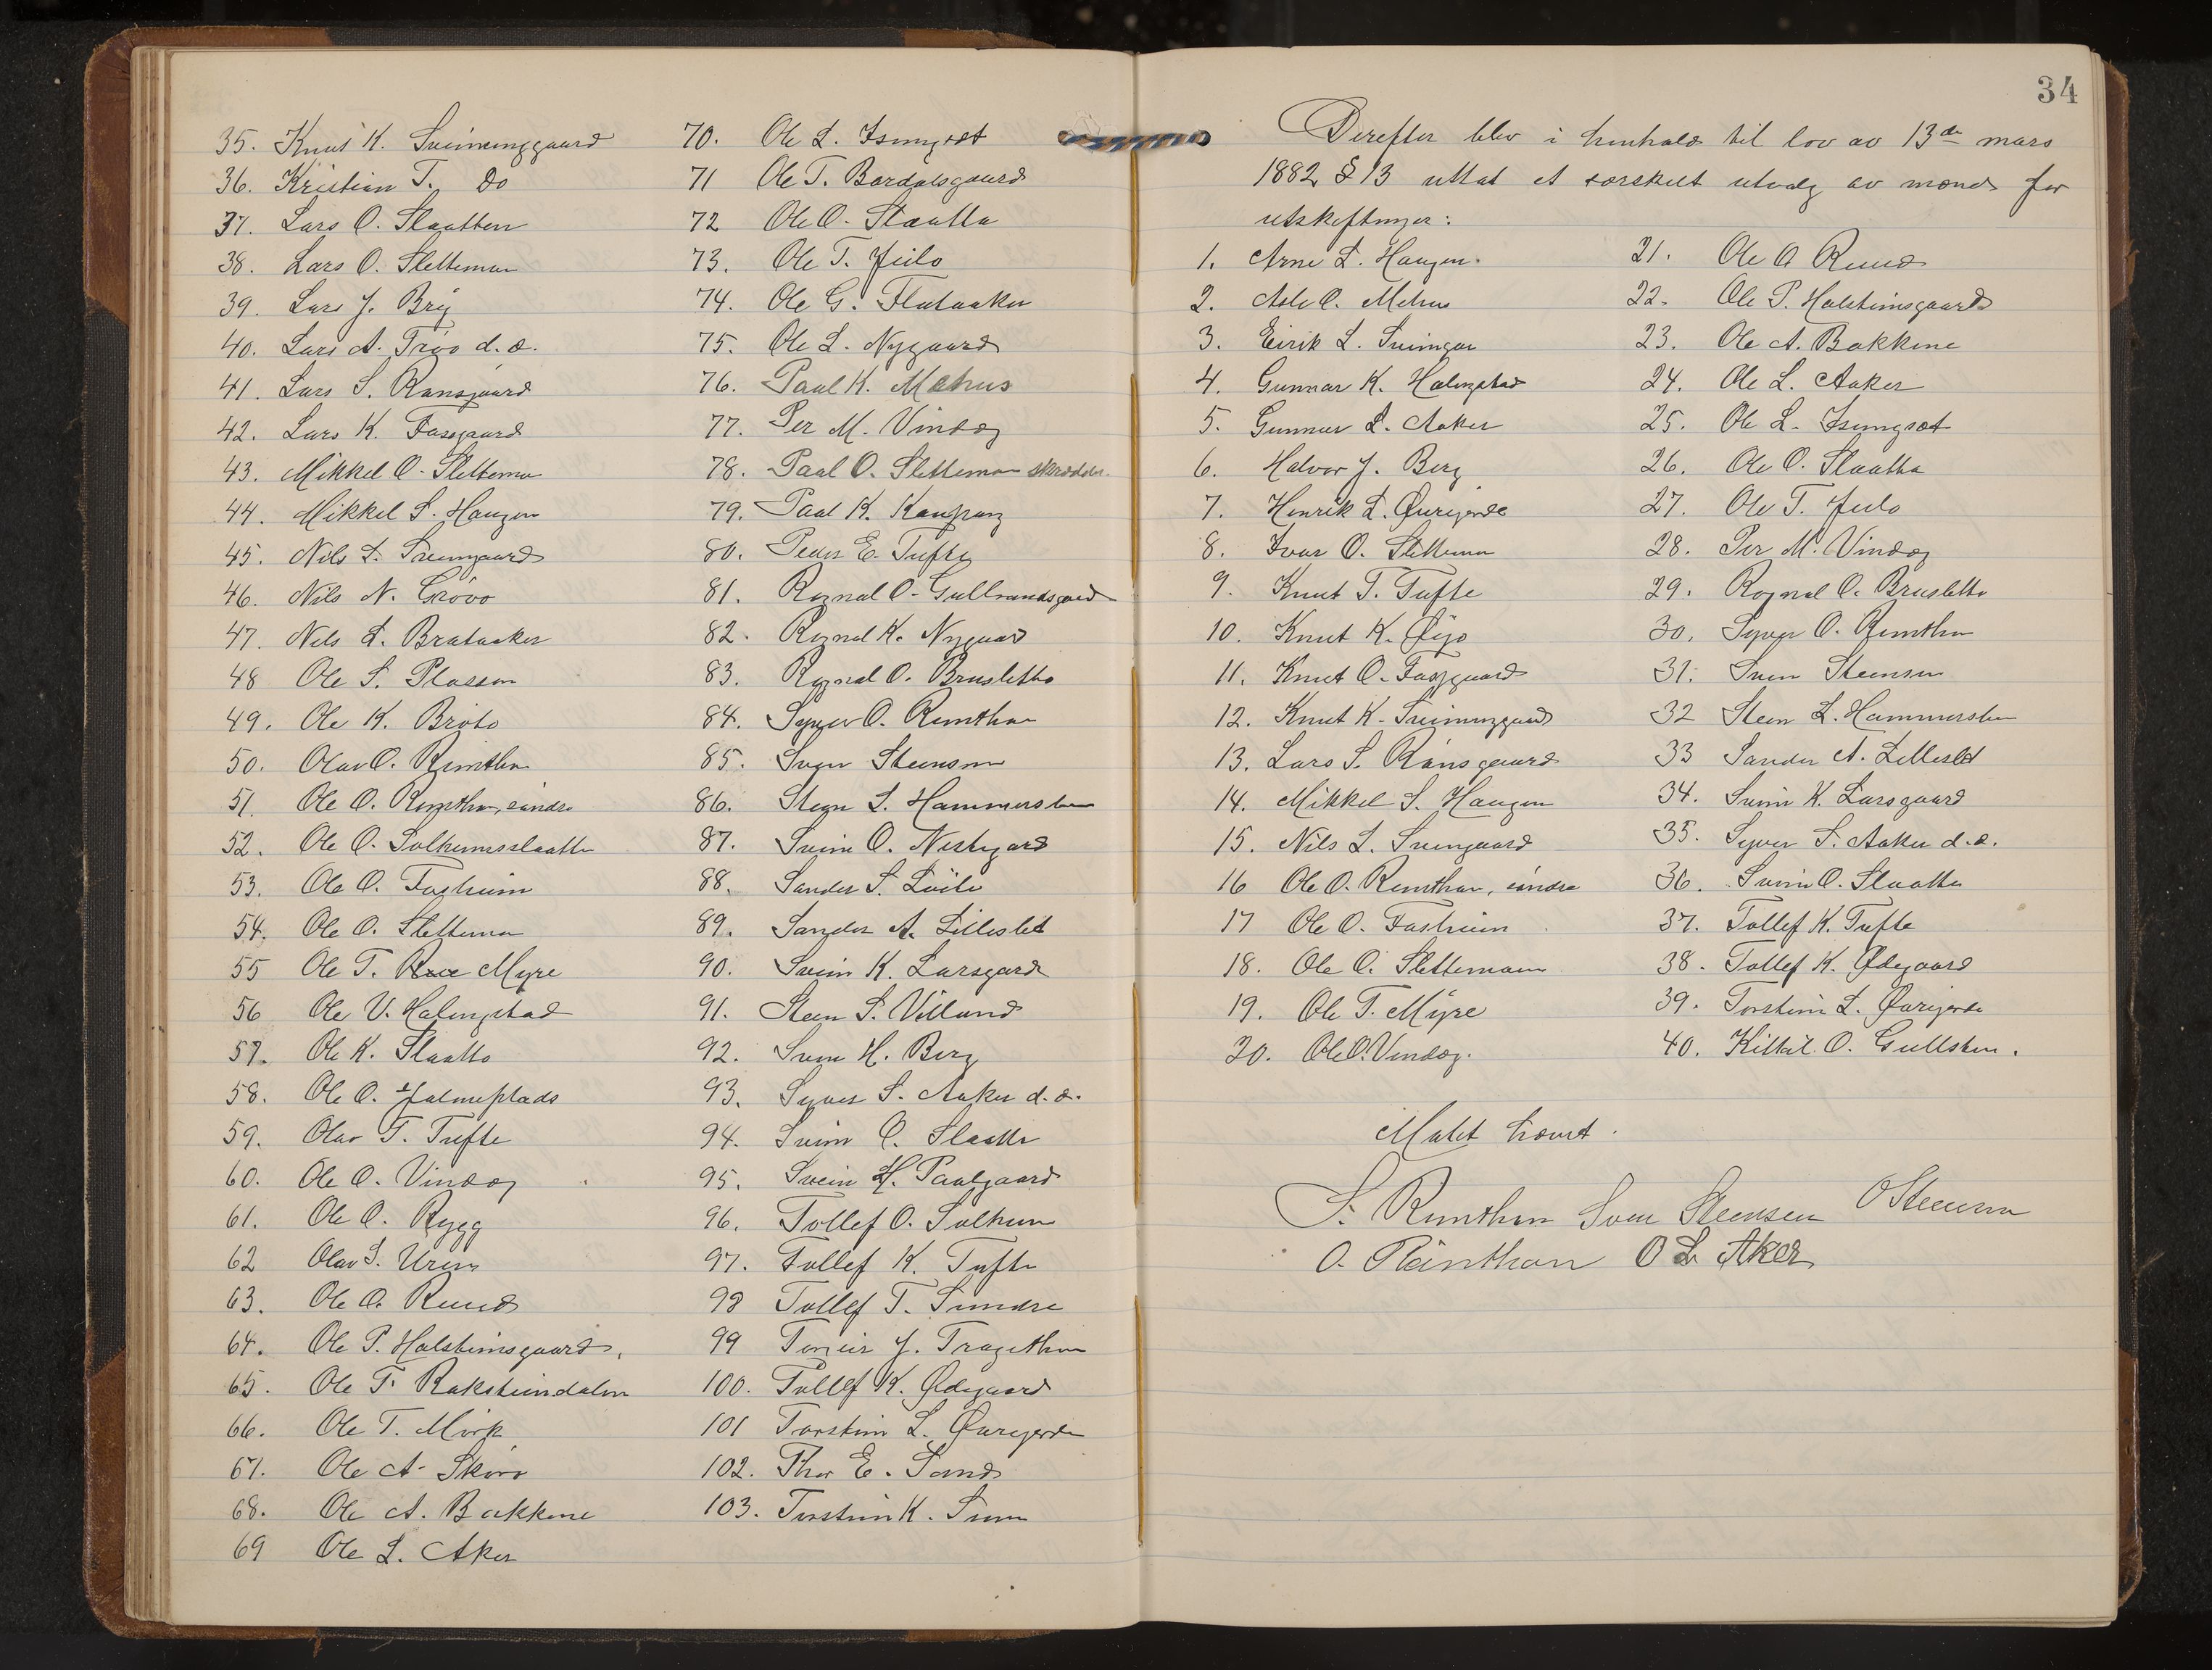 35. Knut K. Sveinunggaard
36. Kristian T. Do
37. Lars O. Slaatten
38. Lars O. Slettemoen
39. Lars J. Brij
40. Lars A. Trøo d.o.
41. Lars S. Ransgaard
42. Lars K. Fossgaard
43. Mikkel O. Slettemo
44. Mikkel S. Haugen
45. Nils L. Sveingaard
46. Nils N. Grøvo
47. Nils L. Brataaker
48 Ole S. Plassen
49. Ole K. Bråto
50. Olav O. Rimthun
51. Ole O. Rimthun, søndre
52. Ole O. Solheimsslaatten
53. Ole O. Fosheim
54. Ole O. Slettemoen
55 Ole T. Myre
56 Ole V. Halingstad
57. Ole K. Slaatto
58. Ole O. Holmeplads
59. Olav T. Tufte
60. Ole O. Vindøg
61. Ole O. Rygg
62 Olav S. Uren
63. Ole O. Ruud
64. Ole P. Halsteinsgaard.
65. Ole T. Raksteindalen
66. Ole T. Mørk
67. Ole A. Skøro
68. Ole A. Bakkene
69 Ole L. Aker
70. Ole L. Isungset
71 Ole T. Bardølsgaard
72 Ole O. Slaatta
73. Ole T. Jeilo
74. Ole G. Flataaker
75. Ole L. Nygaard
76. Paal K. Mehus
77. Per M. Vindøg
78. Paal O. Slettemoen skrædder.
79. Paal K. Kaupang
80. Peder E. Tufte
81. Rognal O. Gullbrandsgaard
82. Rognal K. Nygaard
83. Rognal O. Brusletto
84. Syver O. Rimthun
85. Sven Steensen
86. Steen L. Hammersbøen
87. Svein O. Nestegard
88. Sander S. Løilo
89. Sander A. Lilleslet
90. Svein K. Larsgard
91. Steen S. Villand
92. Svein H. Berg
93. Syver S. Aaker d.o.
94. Svein O. Slaatto
95. Svein H. Paalgaard
96. Tollef O. Solheim
97. Tollef K. Tufte
98 Tollef T. Sundre
99 Torgeir J. Tragethon
100. Tollef K. Ødegaard
101 Torstein L. Øvregjerde
102. Thor E. Sand
103. Torstein K. Svein
34
Derefter blev i henhold til lov av 13de mars
1882 § 13 uttat et særskilt utvalg av mænd for
utskiftninger:
1. Arne L. Haugen.
2. Asle O. Mehus
3. Eirik L. Sveingar
4. Gunnar K. Halingstad
5. Gunnar L. Aaker
6. Halvor J. Berg
7. Henrik L. Øvregjerde
8. Ivar O. Slettemoen
9. Knut T. Tufte
10. Knut K. Øijo
11. Knut O. Fossgaard
12. Knut K. Sveinunggaard
13. Lars S. Ransgaard
14. Mikkel S. Haugen
15. Nils L. Sveingaard
16 Ole O. Rimthun, søndre
17 Ole O. Fosheim
18. Ole O. Slettemoen
19. Ole T. Myre
20. Ole O. Vindøg.
21. Ole O Ruud
22. Ole P. Halsteinsgaard
23. Ole A. Bakkene
24. Ole L. Aaker
25. Ole L. Isungset
26. Ole O. Slaatta
27. Ole T. Jeilo
28. Per M. Vindøg
29. Rognal O. Brusletto
30. Syver O. Rimthun
31. Sven Steensen
32 Steen L. Hammersbøen
33 Sander A. Lilleslet
34. Svein K. Larsgaard
35. Syver S. Aaker d.o.
36. Svein O. Slaatto
37. Tollef K. Tufte
38. Tollef K. Ødegaard
39. Torstein L. Øvregjerde
40. Kittil O. Gullsteen.
Møtet hævet.
S. Rimthun Sven Steensen O Steensen
O. Reinthon O L Aker